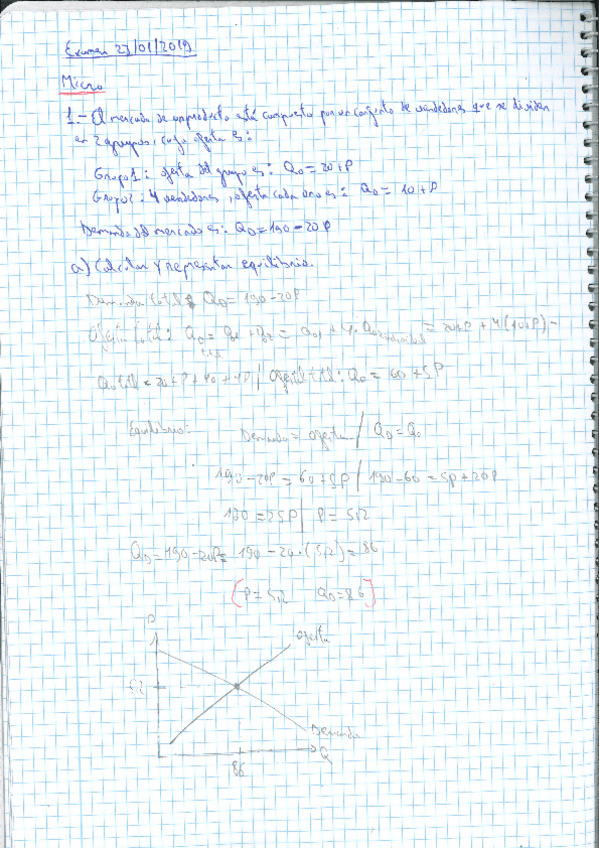 Examen 23/01/2019
Micro
1.- El mercado de un producto está compuesto por un conjunto de vendedores que se dividen
en 2 grupos, cuya oferta es:
Grupo 1: oferta del grupo es: Qo = 20+P
Grupo 2: 4 vendedores, oferta cada uno es: Qo = 10+P
Demanda del mercado es: QD = 190 - 20P
a) Calcular y representar equilibrio.
Demanda total QD = 190 - 20P
Oferta total: = 20+P + 4(10+P) =
Qototal = 20+P+40+4P / Oferta total: Qo = 60+5P
Equilibrio: Demanda = oferta / QD = Qo
190-20P = 60+5P / 190-60 = 5P+20P
130 = 25P / P = 5,2
QD = 190-20P = 190-20·(5,2) = 86
[P = 5,2 QD = 86]
P
Oferta
5,2
Demanda
Q
86